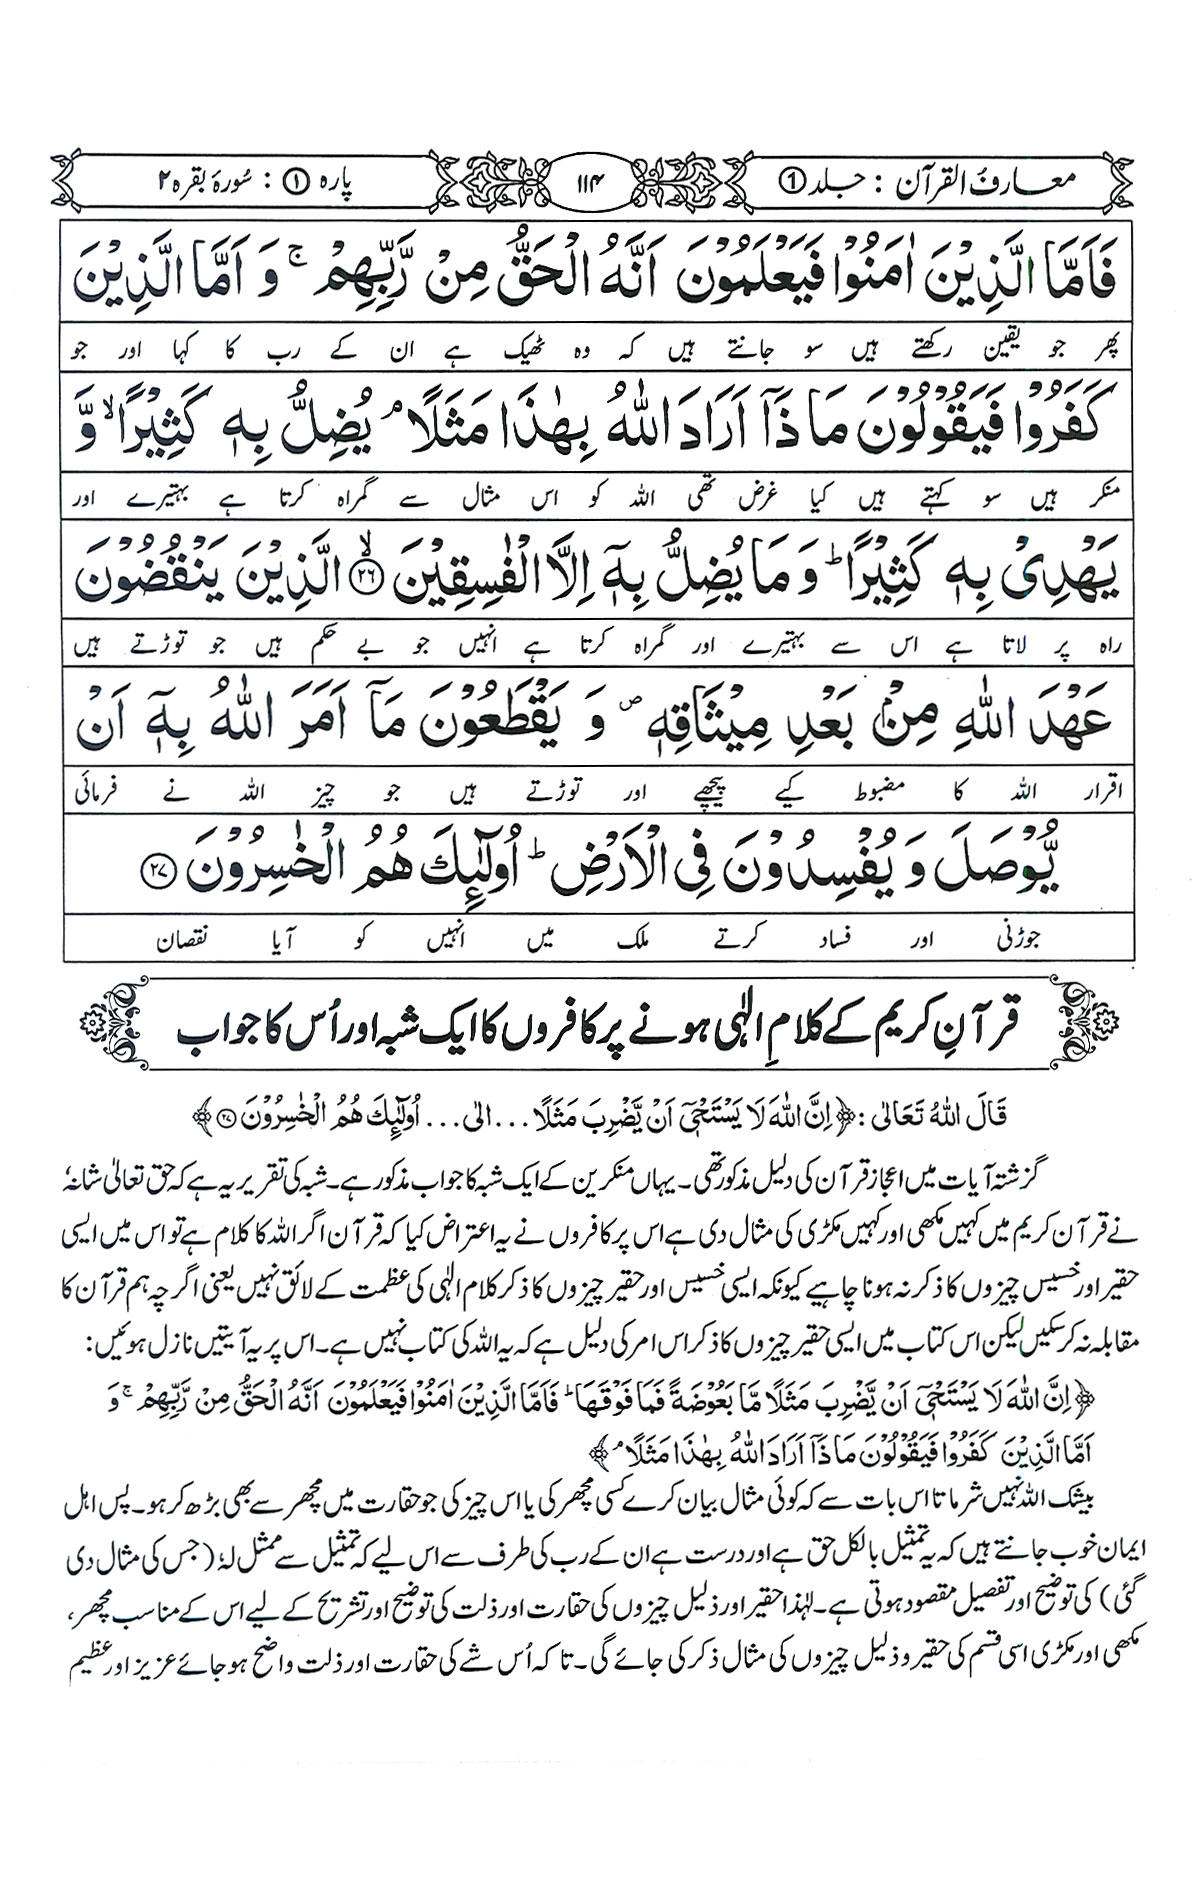 معارفُ القرآن : جلد ①
۱۱۴
پارہ ① : سُورۂ بقرہ ۲
فَاَمَّا الَّذِیْنَ اٰمَنُوْا فَیَعْلَمُوْنَ اَنَّهُ الْحَقُّ مِنْ رَّبِّهِمْ ۚ وَ اَمَّا الَّذِیْنَ
پھر جو یقین رکھتے ہیں سو جانتے ہیں کہ وہ ٹھیک ہے ان کے رب کا کہا اور جو
کَفَرُوْا فَیَقُوْلُوْنَ مَاذَاۤ اَرَادَ اللّٰهُ بِهٰذَا مَثَلًا ۘ یُضِلُّ بِهٖ کَثِیْرًا ۙ وَّ
منکر ہیں سو کہتے ہیں کیا غرض تھی اللہ کو اس مثال سے گمراہ کرتا ہے بہتیرے اور
یَهْدِیْ بِهٖ کَثِیْرًا ؕ وَ مَا یُضِلُّ بِهٖۤ اِلَّا الْفٰسِقِیْنَ ۙ﴿۲۶﴾ الَّذِیْنَ یَنْقُضُوْنَ
راہ پر لاتا ہے اس سے بہتیرے اور گمراہ کرتا ہے انہیں جو بے حکم ہیں جو توڑتے ہیں
عَهْدَ اللّٰهِ مِنْۢ بَعْدِ مِیْثَاقِهٖ ۪ وَ یَقْطَعُوْنَ مَاۤ اَمَرَ اللّٰهُ بِهٖۤ اَنْ
اقرار اللہ کا مضبوط کیے پیچھے اور توڑتے ہیں جو چیز اللہ نے فرمائی
یُّوْصَلَ وَ یُفْسِدُوْنَ فِی الْاَرْضِ ؕ اُولٰٓئِکَ هُمُ الْخٰسِرُوْنَ ﴿۲۷﴾
جوڑنی اور فساد کرتے ملک میں انہیں کو آیا نقصان
قرآنِ کریم کے کلامِ الٰہی ہونے پر کافروں کا ایک شبہ اور اُس کا جواب
قَالَ اللّٰهُ تَعَالٰی : ﴿اِنَّ اللّٰهَ لَا یَسْتَحْیٖۤ اَنْ یَّضْرِبَ مَثَلًا ... الٰی ... اُولٰٓئِکَ هُمُ الْخٰسِرُوْنَ ۲۷﴾
گزشتہ آیات میں اعجاز قرآن کی دلیل مذکور تھی۔ یہاں منکرین کے ایک شبہ کا جواب مذکور ہے۔ شبہ کی تقریر یہ ہے کہ حق تعالیٰ شانہٗ
نے قرآن کریم میں کہیں مکھی اور کہیں مکڑی کی مثال دی ہے اس پر کافروں نے یہ اعتراض کیا کہ قرآن اگر اللہ کا کلام ہے تو اس میں ایسی
حقیر اور خسیس چیزوں کا ذکر نہ ہونا چاہیے کیونکہ ایسی خسیس اور حقیر چیزوں کا ذکر کلام الٰہی کی عظمت کے لائق نہیں یعنی اگرچہ ہم قرآن کا
مقابلہ نہ کر سکیں لیکن اس کتاب میں ایسی حقیر چیزوں کا ذکر اس امر کی دلیل ہے کہ یہ اللہ کی کتاب نہیں ہے۔ اس پر یہ آیتیں نازل ہوئیں:
﴿اِنَّ اللّٰهَ لَا یَسْتَحْیٖۤ اَنْ یَّضْرِبَ مَثَلًا مَّا بَعُوْضَةً فَمَا فَوْقَهَا ؕ فَاَمَّا الَّذِیْنَ اٰمَنُوْا فَیَعْلَمُوْنَ اَنَّهُ الْحَقُّ مِنْ رَّبِّهِمْ ۚ وَ
اَمَّا الَّذِیْنَ کَفَرُوْا فَیَقُوْلُوْنَ مَاذَاۤ اَرَادَ اللّٰهُ بِهٰذَا مَثَلًا ۘ﴾
بیشک اللہ نہیں شرماتا اس بات سے کہ کوئی مثال بیان کرے کسی مچھر کی یا اس چیز کی جو حقارت میں مچھر سے بھی بڑھ کر ہو۔ پس اہل
ایمان خوب جانتے ہیں کہ یہ تمثیل بالکل حق ہے اور درست ہے ان کے رب کی طرف سے اس لیے کہ تمثیل سے ممثل لہٗ (جس کی مثال دی
گئی) کی توضیح اور تفصیل مقصود ہوتی ہے۔ لہٰذا حقیر اور ذلیل چیزوں کی حقارت اور ذلت کی توضیح اور تشریح کے لیے اس کے مناسب مچھر،
مکھی اور مکڑی اسی قسم کی حقیر و ذلیل چیزوں کی مثال ذکر کی جائے گی۔ تاکہ اُس شے کی حقارت اور ذلت واضح ہو جائے عزیز اور عظیم